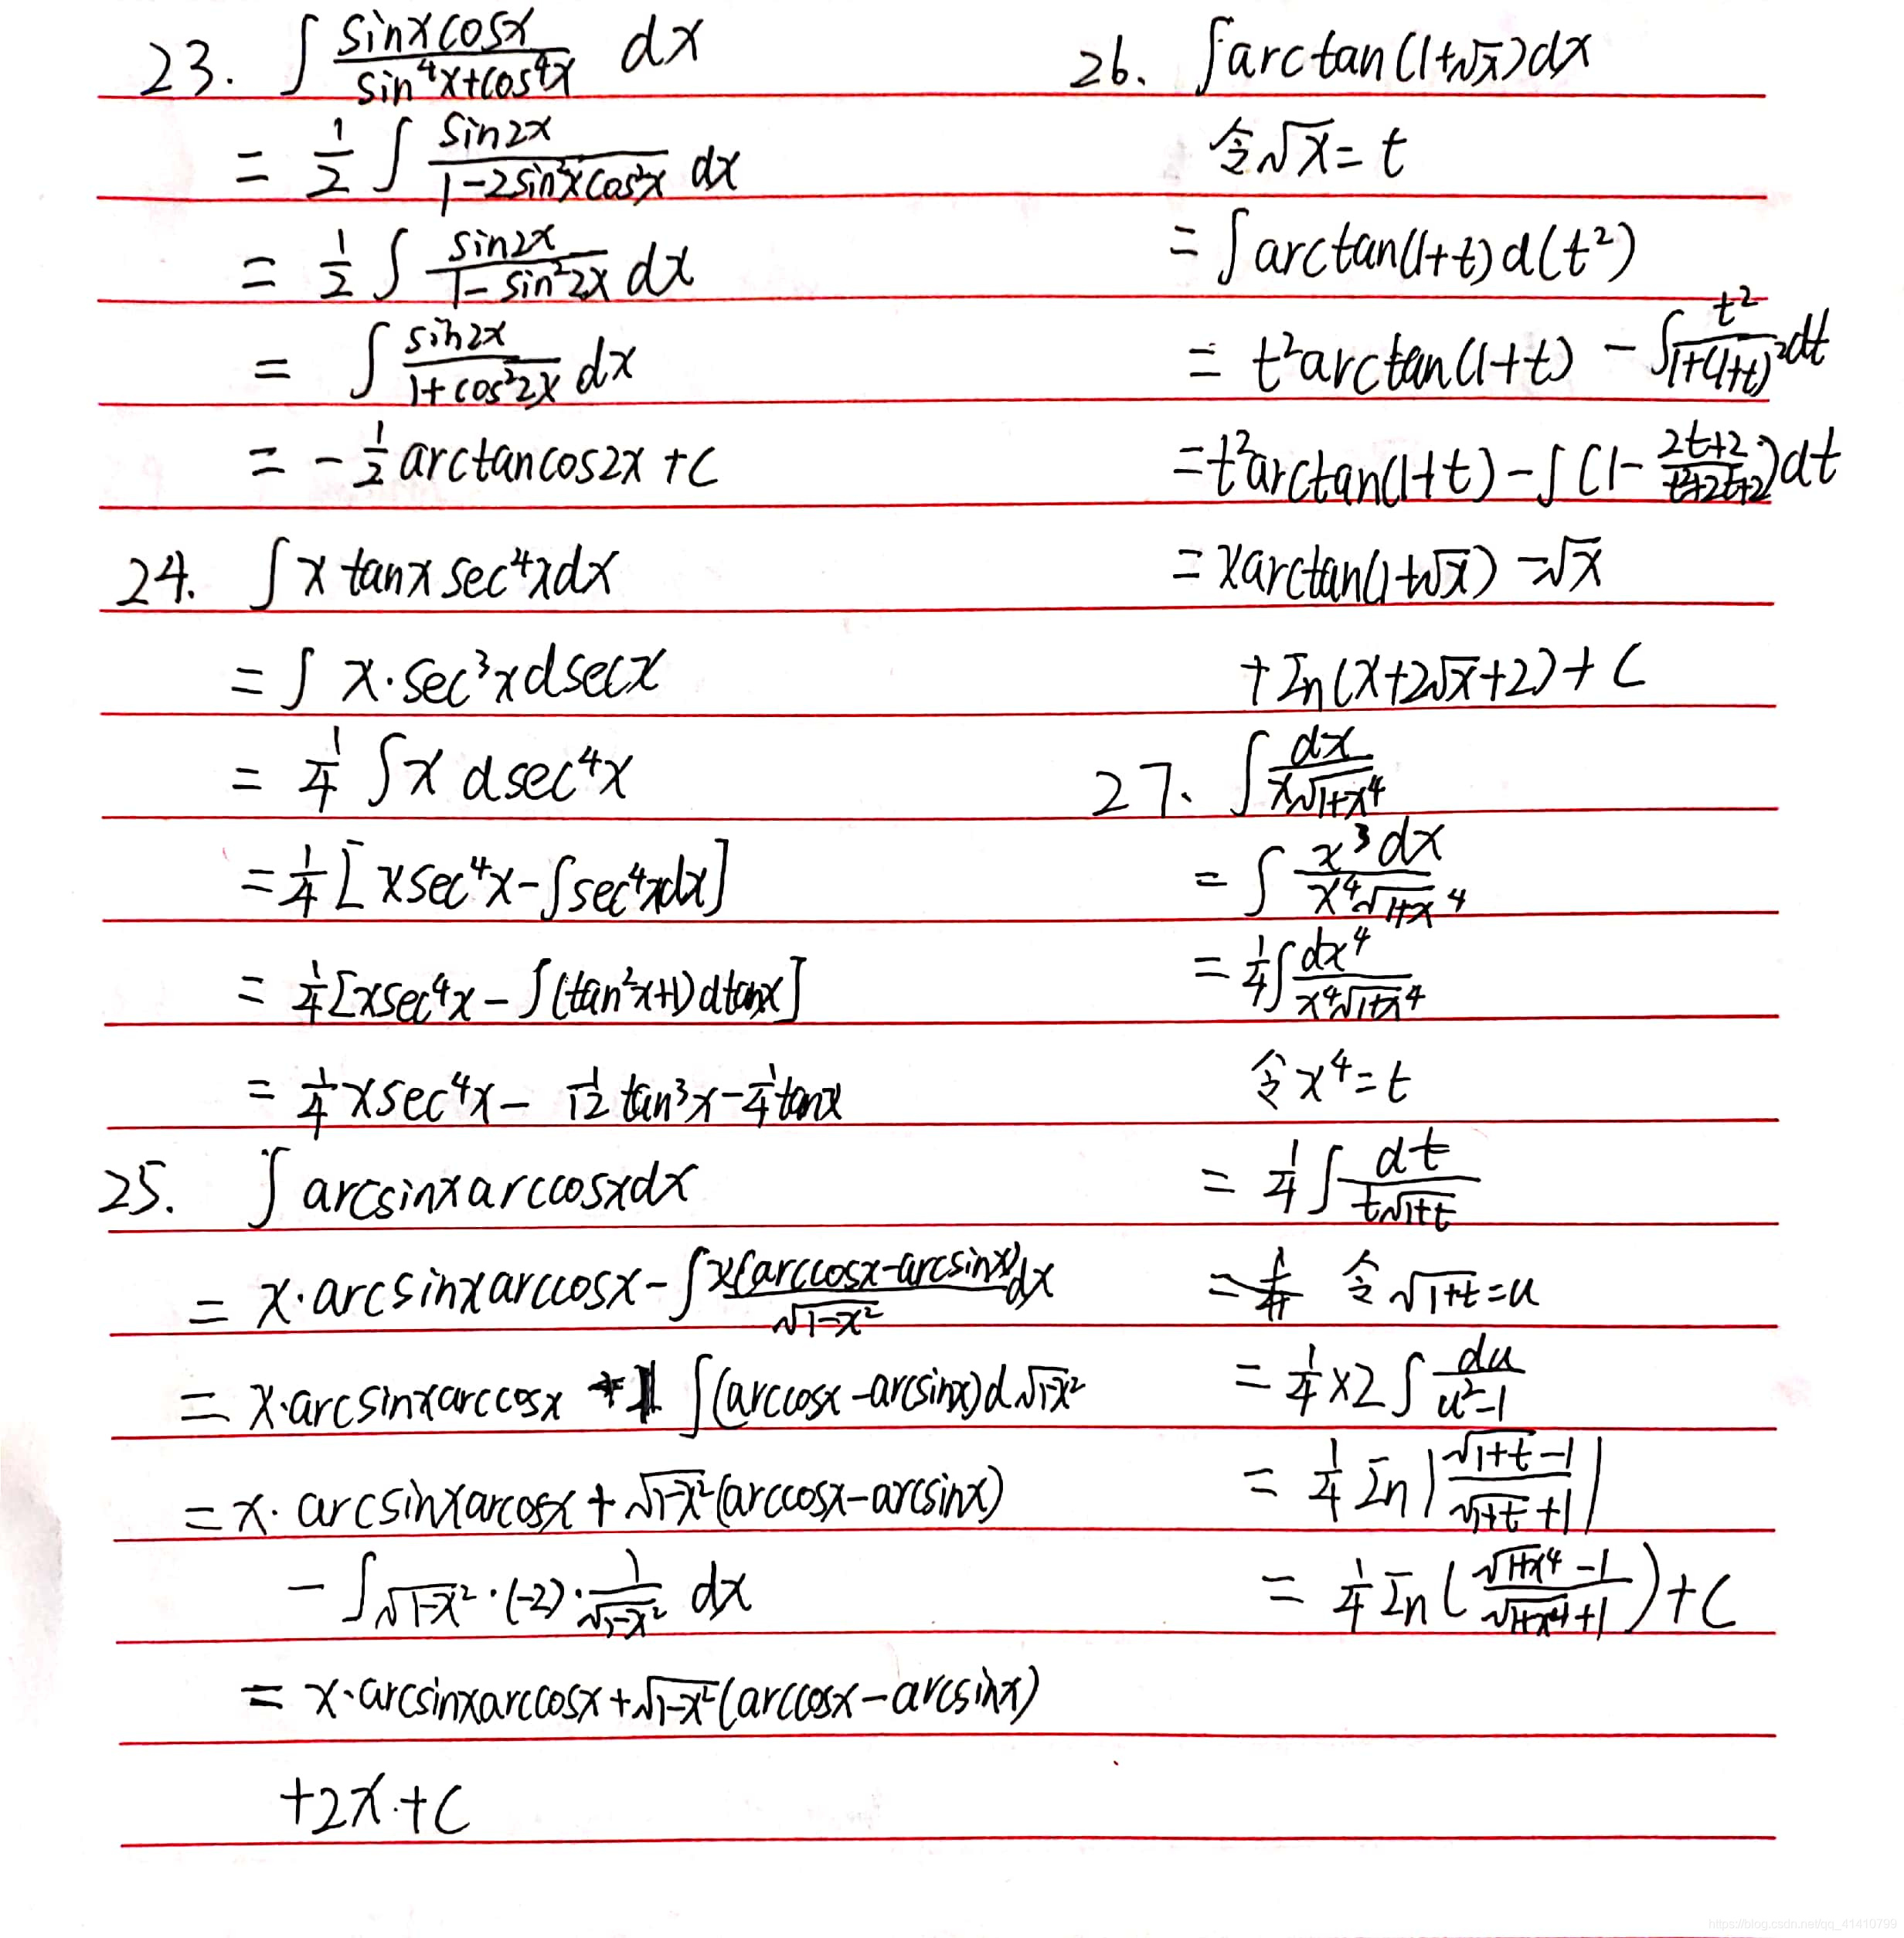 23. ∫ sinxcosx/(sin⁴x+cos⁴x) dx
= 1/2 ∫ sin2x/(1-2sin²xcos²x) dx
= 1/2 ∫ sin2x/(1-sin²2x) dx
= ∫ sin2x/(1+cos²2x) dx
= -1/2 arctancos2x+C
24. ∫x tanx sec⁴xdx
= ∫ x·sec³xdsecx
= 1/4 ∫x dsec⁴x
= 1/4[xsec⁴x-∫sec⁴xdx]
= 1/4[xsec⁴x-∫(tan²x+1)dtanx]
= 1/4xsec⁴x- 1/12 tan³x-1/4tanx
25. ∫arcsinxarccosxdx
= x·arcsinxarccosx-∫x(arccosx-arcsinx)/√(1-x²) dx
= x·arcsinxarccosx + ∫(arccosx-arcsinx)d√(1-x²)
= x·arcsinxarcosx+√(1-x²)(arccosx-arcsinx)
-∫√(1-x²)·(-2)·1/√(1-x²) dx
= x·arcsinxarccosx+√(1-x²)(arccosx-arcsinx)
+2x+C
26. ∫arctan(1+√x)dx
令√x=t
= ∫arctan(1+t)d(t²)
= t²arctan(1+t)-∫t²/(1+(1+t)²)dt
= t²arctan(1+t)-∫(1-(2t+2)/(t²+2t+2))dt
= xarctan(1+√x)-√x
+ln(x+2√x+2)+C
27. ∫dx/(x√(1+x⁴))
= ∫ x³dx/(x⁴√(1+x⁴))
= 1/4∫dx⁴/(x⁴√(1+x⁴))
令x⁴=t
= 1/4∫dt/(t√(1+t))
= 令√(1+t)=u
= 1/4×2∫du/(u²-1)
= 1/4 ln|(√(1+t)-1)/(√(1+t)+1)|
= 1/4 ln((√(1+x⁴)-1)/(√(1+x⁴)+1))+C
https://blog.csdn.net/qq_41410799